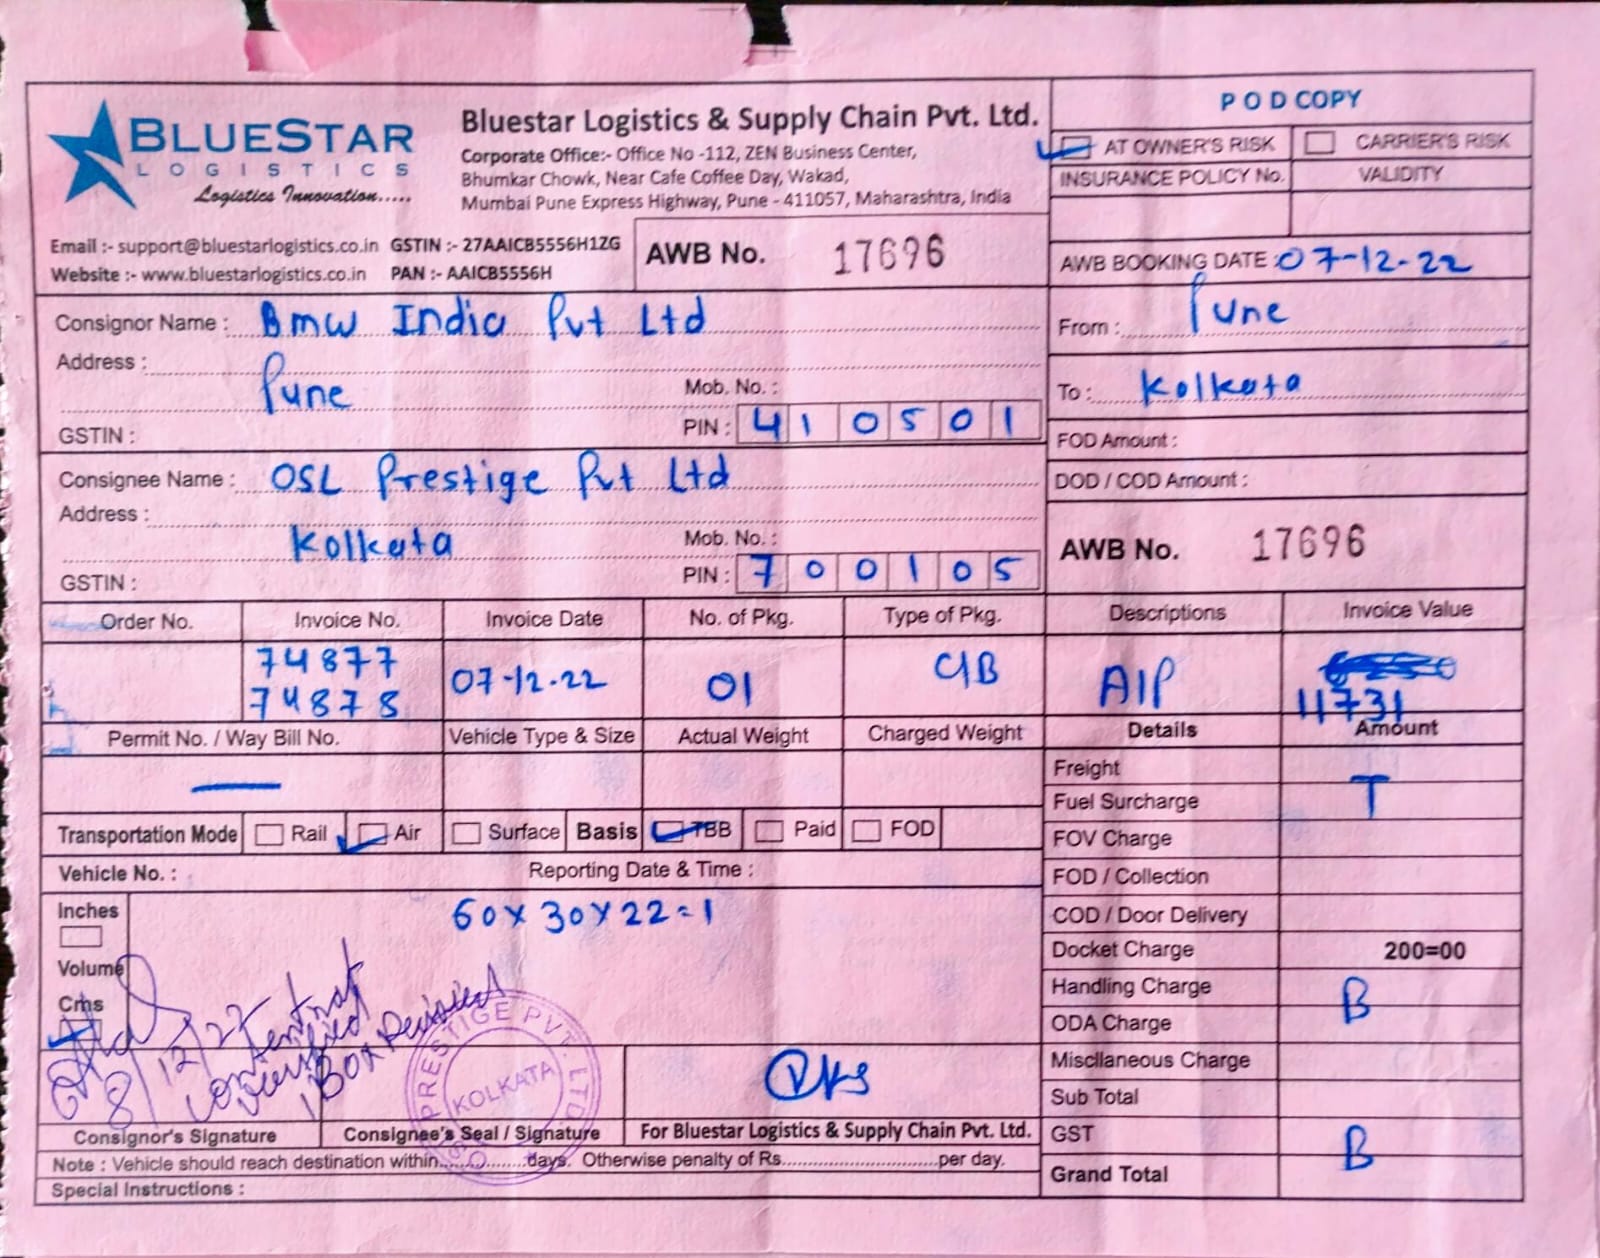 BLUESTAR
LOGISTICS
Logistics Innovation.....
Bluestar Logistics & Supply Chain Pvt. Ltd.
Corporate Office:- Office No -112, ZEN Business Center,
Bhumkar Chowk, Near Cafe Coffee Day, Wakad,
Mumbai Pune Express Highway, Pune - 411057, Maharashtra, India
Email :- support@bluestarlogistics.co.in GSTIN :- 27AAICB5556H1ZG
Website :- www.bluestarlogistics.co.in PAN :- AAICB5556H
AWB No. 17696
P O D COPY
AT OWNER'S RISK CARRIER'S RISK
INSURANCE POLICY No. VALIDITY
AWB BOOKING DATE : 07-12-22
Consignor Name : Bmw India Pvt Ltd
Address :
Pune Mob. No. :
GSTIN : PIN : 410501
From : Pune
To : Kolkata
FOD Amount :
Consignee Name : OSL Prestige Pvt Ltd
Address :
Kolkata Mob. No. :
GSTIN : PIN : 700105
DOD / COD Amount :
AWB No. 17696
Order No. Invoice No. Invoice Date No. of Pkg. Type of Pkg. Descriptions Invoice Value
74877
74878 07-12-22 01 C/B AIP 11731
Permit No. / Way Bill No. Vehicle Type & Size Actual Weight Charged Weight Details Amount
Transportation Mode Rail Air Surface Basis TBB Paid FOD
Vehicle No. : Reporting Date & Time :
Inches
60 x 30 x 22 = 1
Volume
Cms
8/12/22
Content
verified
1 Box
PRESTIGE PVT. LTD
KOLKATA
Consignor's Signature Consignee's Seal / Signature For Bluestar Logistics & Supply Chain Pvt. Ltd.
Note : Vehicle should reach destination within..............days. Otherwise penalty of Rs..............................per day.
Special Instructions :
Freight
T
Fuel Surcharge
FOV Charge
FOD / Collection
COD / Door Delivery
Docket Charge 200=00
Handling Charge
B
ODA Charge
Miscllaneous Charge
Sub Total
GST
B
Grand Total